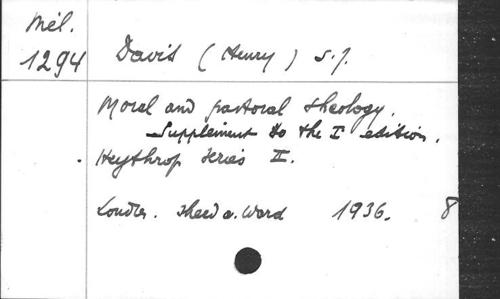 Mél.
1294
Davis (Henry) S.J.
Moral and pastoral theology.
Supplement to the I edition.
Heythrop series II.
London. Sheed a. Ward 1936. 8